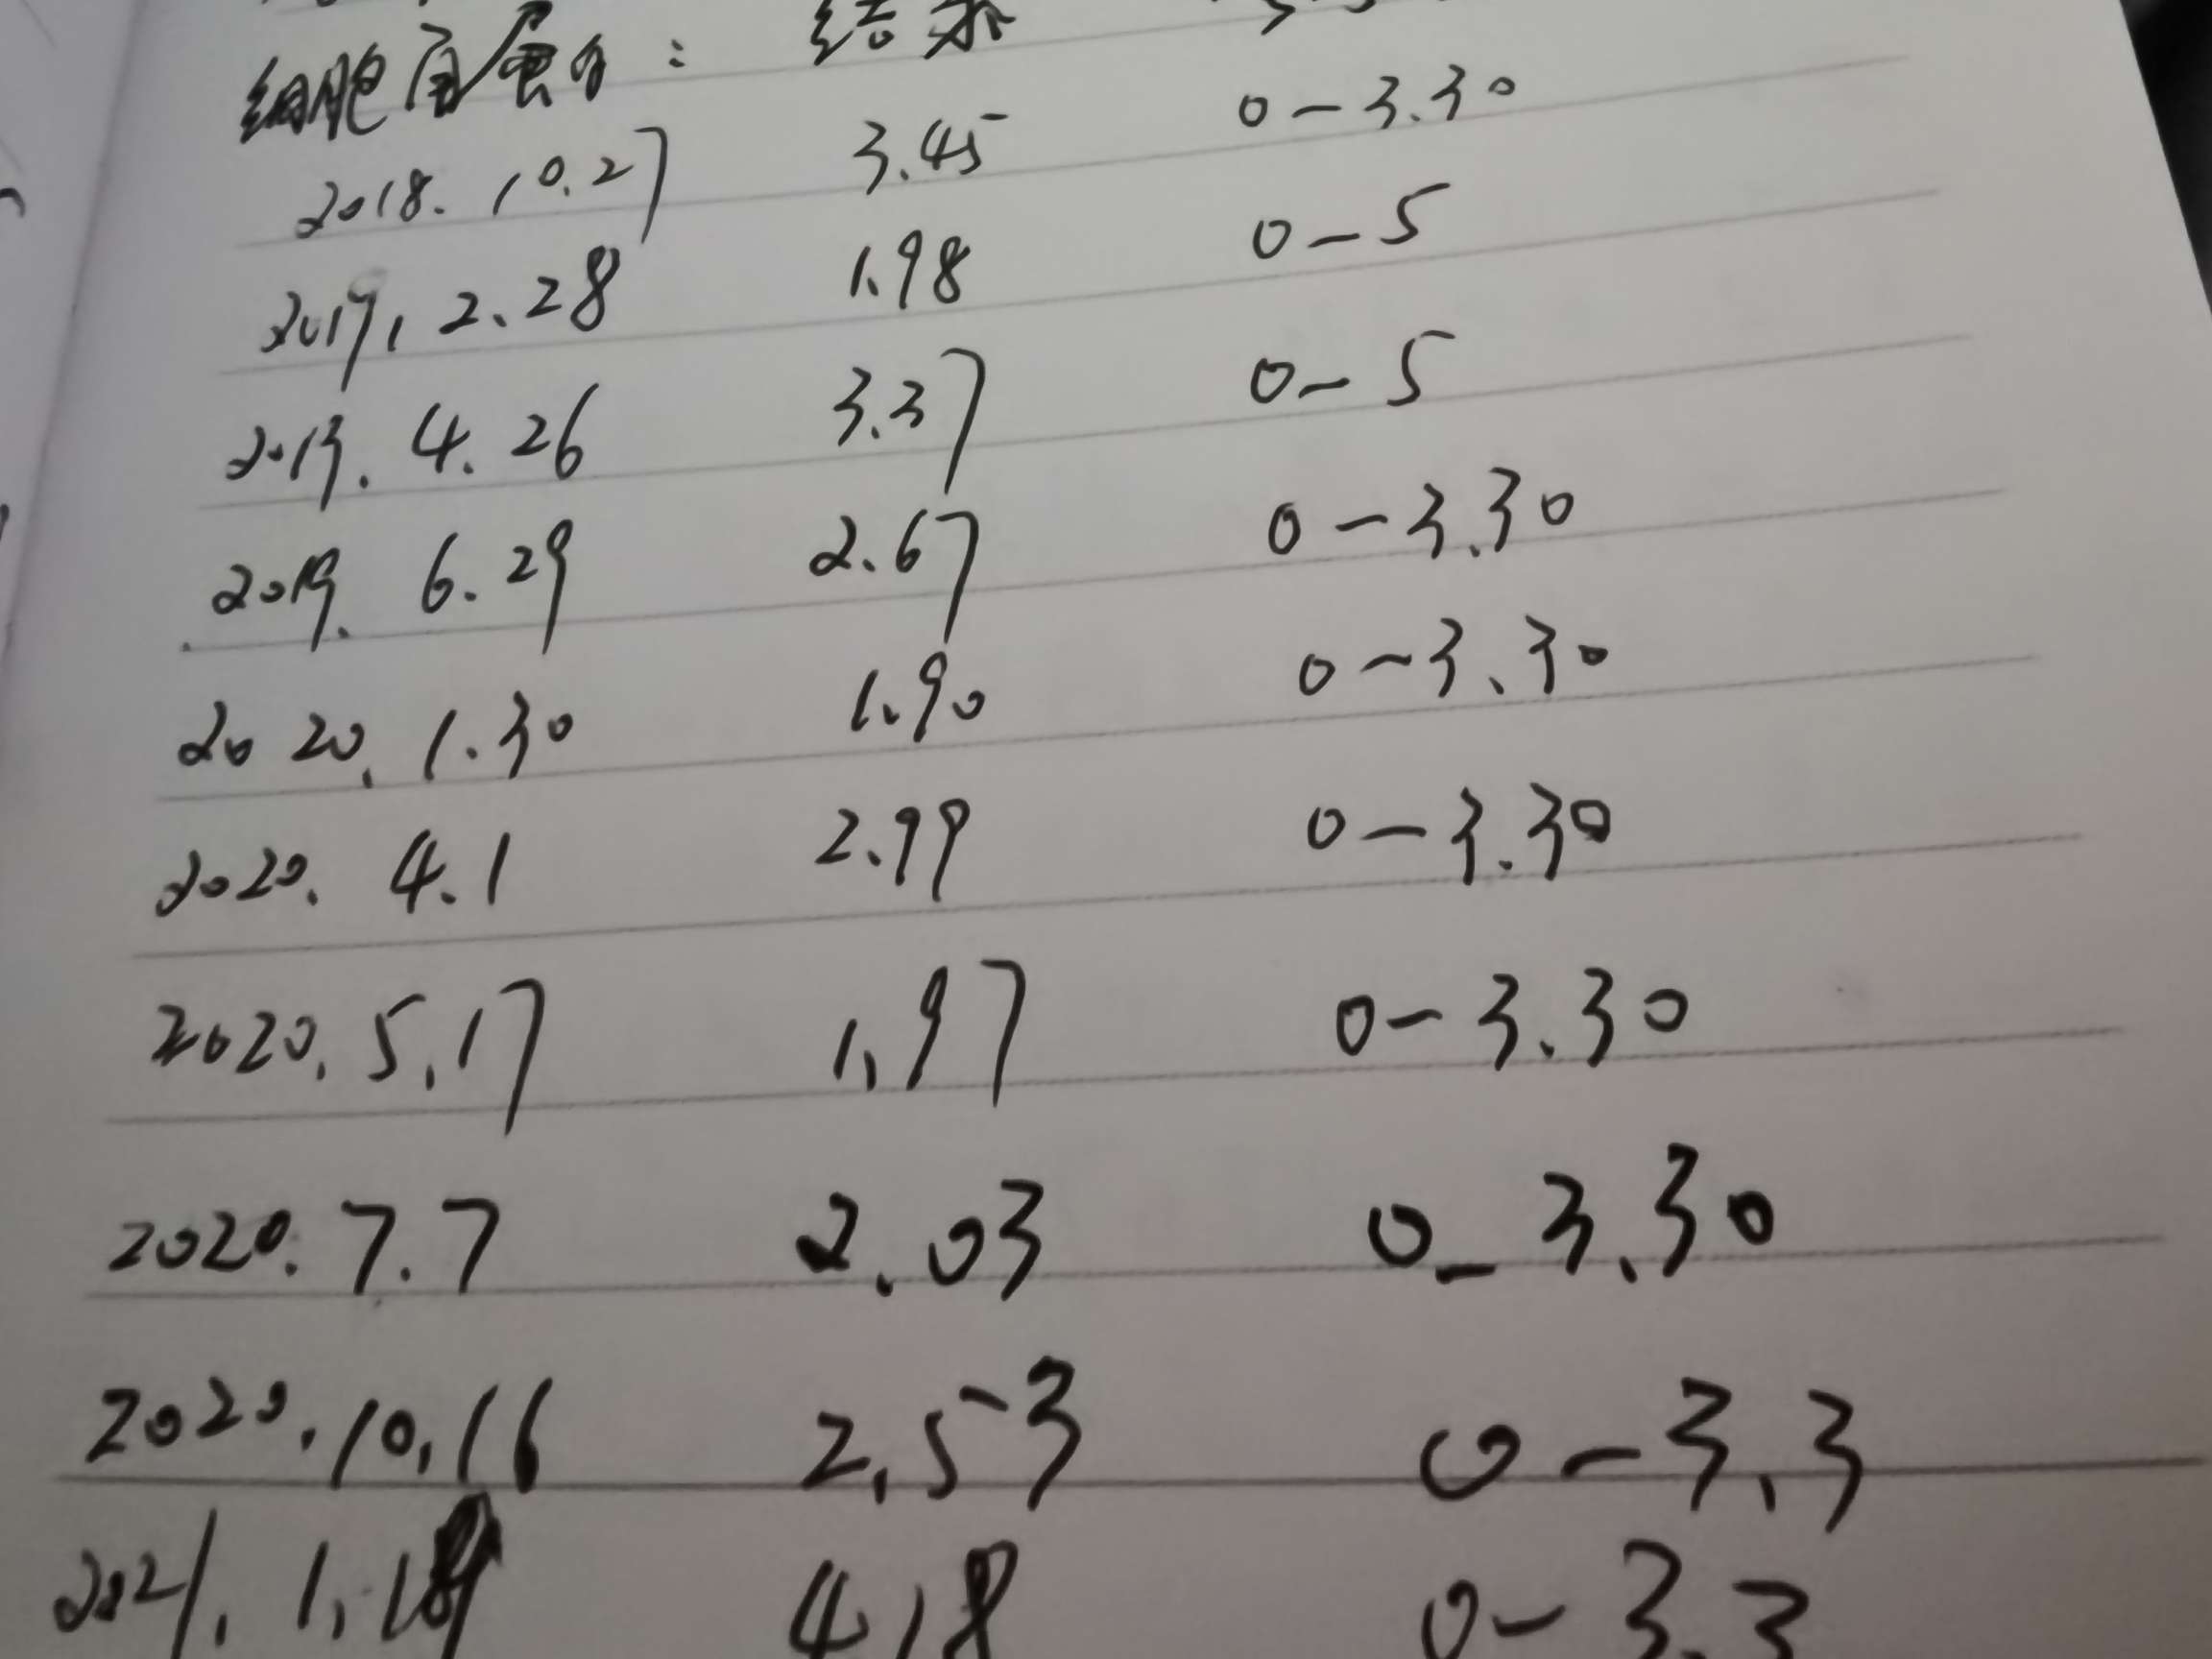 细胞角蛋白： 结果
2018.10.27 3.45 0-3.30
2019.2.28 1.98 0-5
2019.4.26 3.37 0-5
2019.6.29 2.67 0-3.30
2020.1.30 1.90 0-3.30
2020.4.1 2.99 0-3.30
2020.5.17 1.97 0-3.30
2020.7.7 2.03 0-3.30
2020.10.16 2.53 0-3.3
2021.1. 4.18 0-3.3